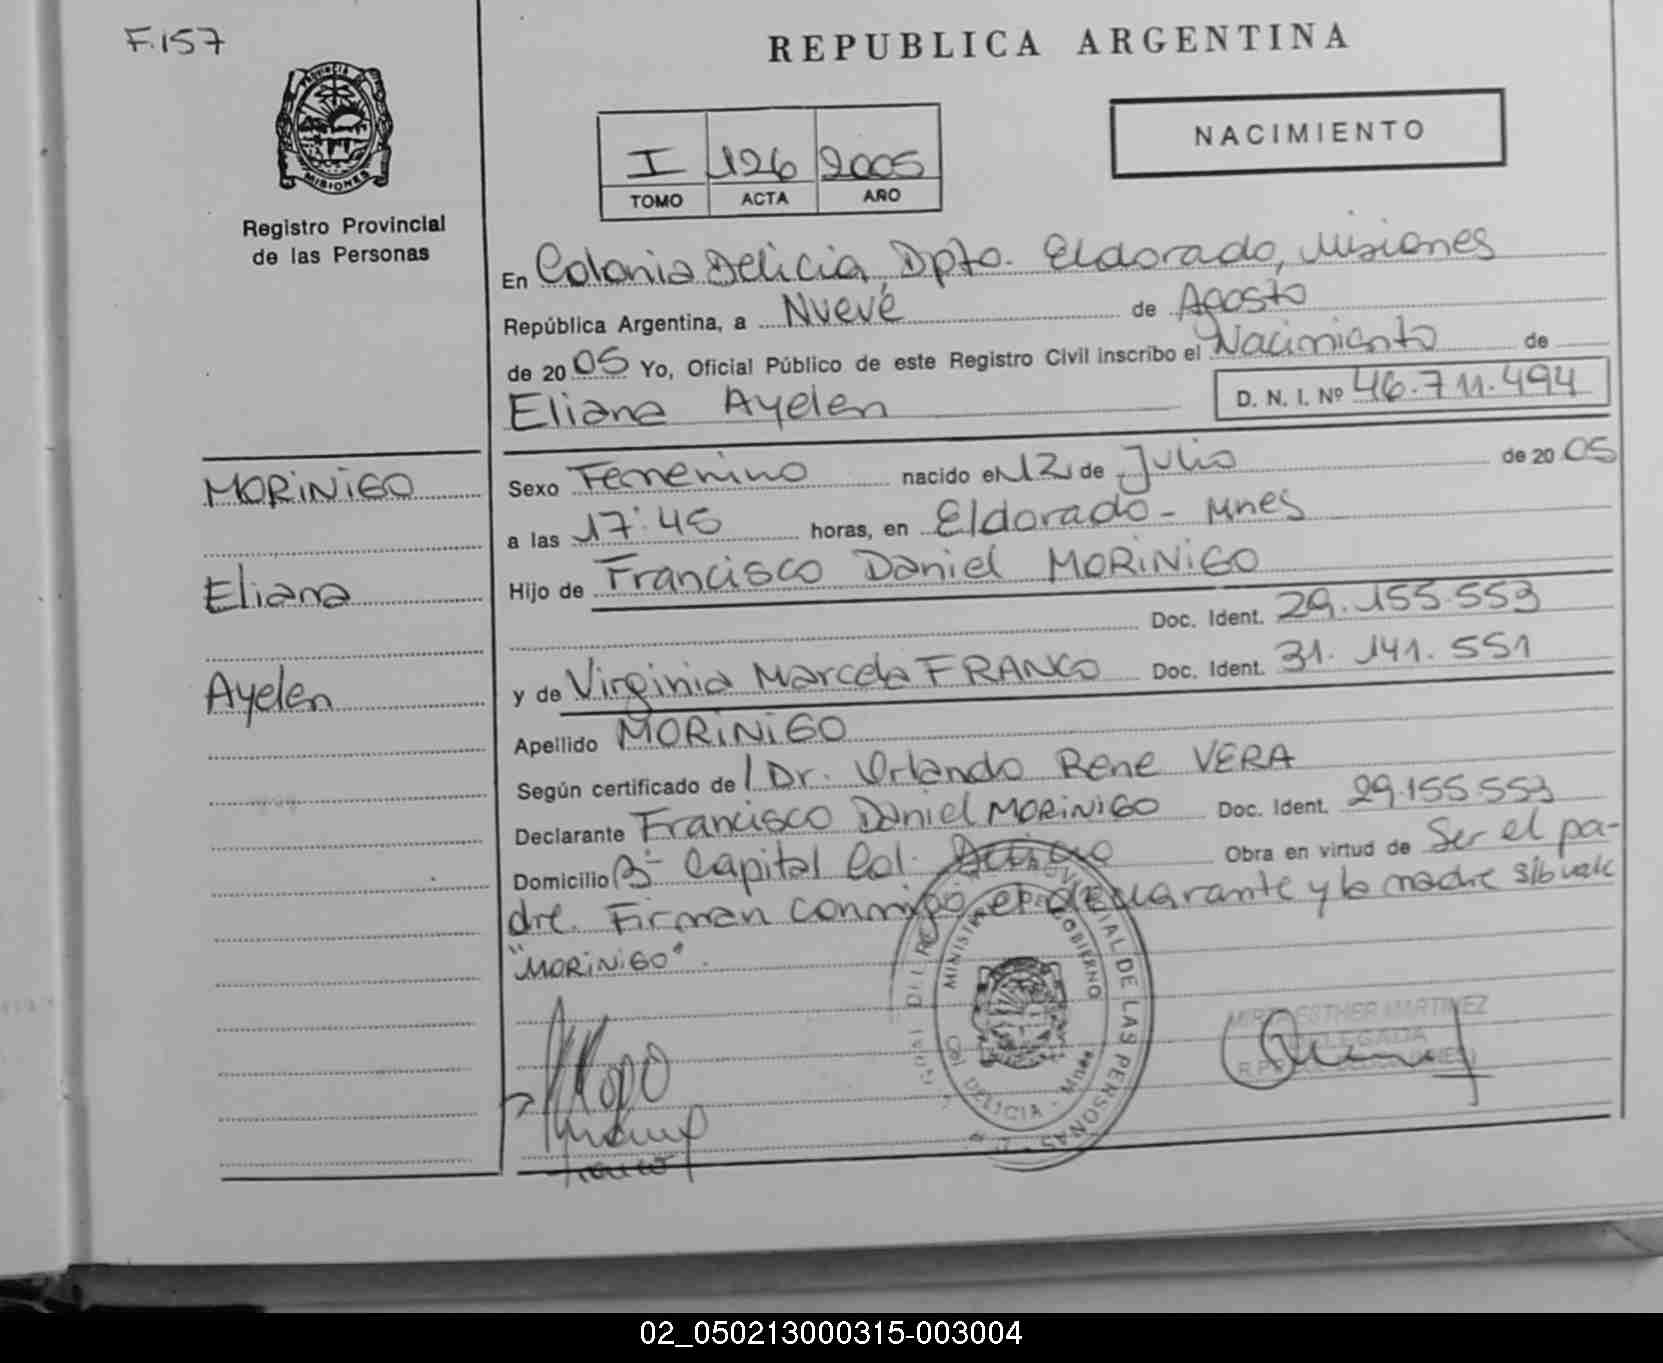 F.157
REPUBLICA ARGENTINA
PROVINCIA DE
MISIONES
Registro Provincial
de las Personas
I 126 2005
TOMO ACTA AÑO
NACIMIENTO
En Colonia Delicia, Dpto. Eldorado, Misiones
República Argentina, a Nueve de Agosto
de 2005 Yo, Oficial Público de este Registro Civil inscribo el Nacimiento de
Eliana Ayelen D. N. I. Nº 46.711.494
MORINIGO
Eliana
Ayelen
Sexo Femenino nacido en 12 de Julio de 2005
a las 17:45 horas, en Eldorado - Mnes
Hijo de Francisco Daniel MORINIGO
Doc. Ident. 29.155.553
y de Virginia Marcela FRANCO Doc. Ident. 31.141.551
Apellido MORINIGO
Según certificado de Dr. Orlando Rene VERA
Declarante Francisco Daniel MORINIGO Doc. Ident. 29.155.553
Domicilio Bº Capital Col. Delicia Obra en virtud de Ser el pa-
dre. Firman conmigo el declarante y la madre s/b vale
"MORINIGO".
MINISTERIO DE GOBIERNO
PROVINCIAL DE LAS PERSONAS
COL DELICIA - Mnes
MIRTA ESTHER MARTINEZ
DELEGADA
02_050213000315-003004